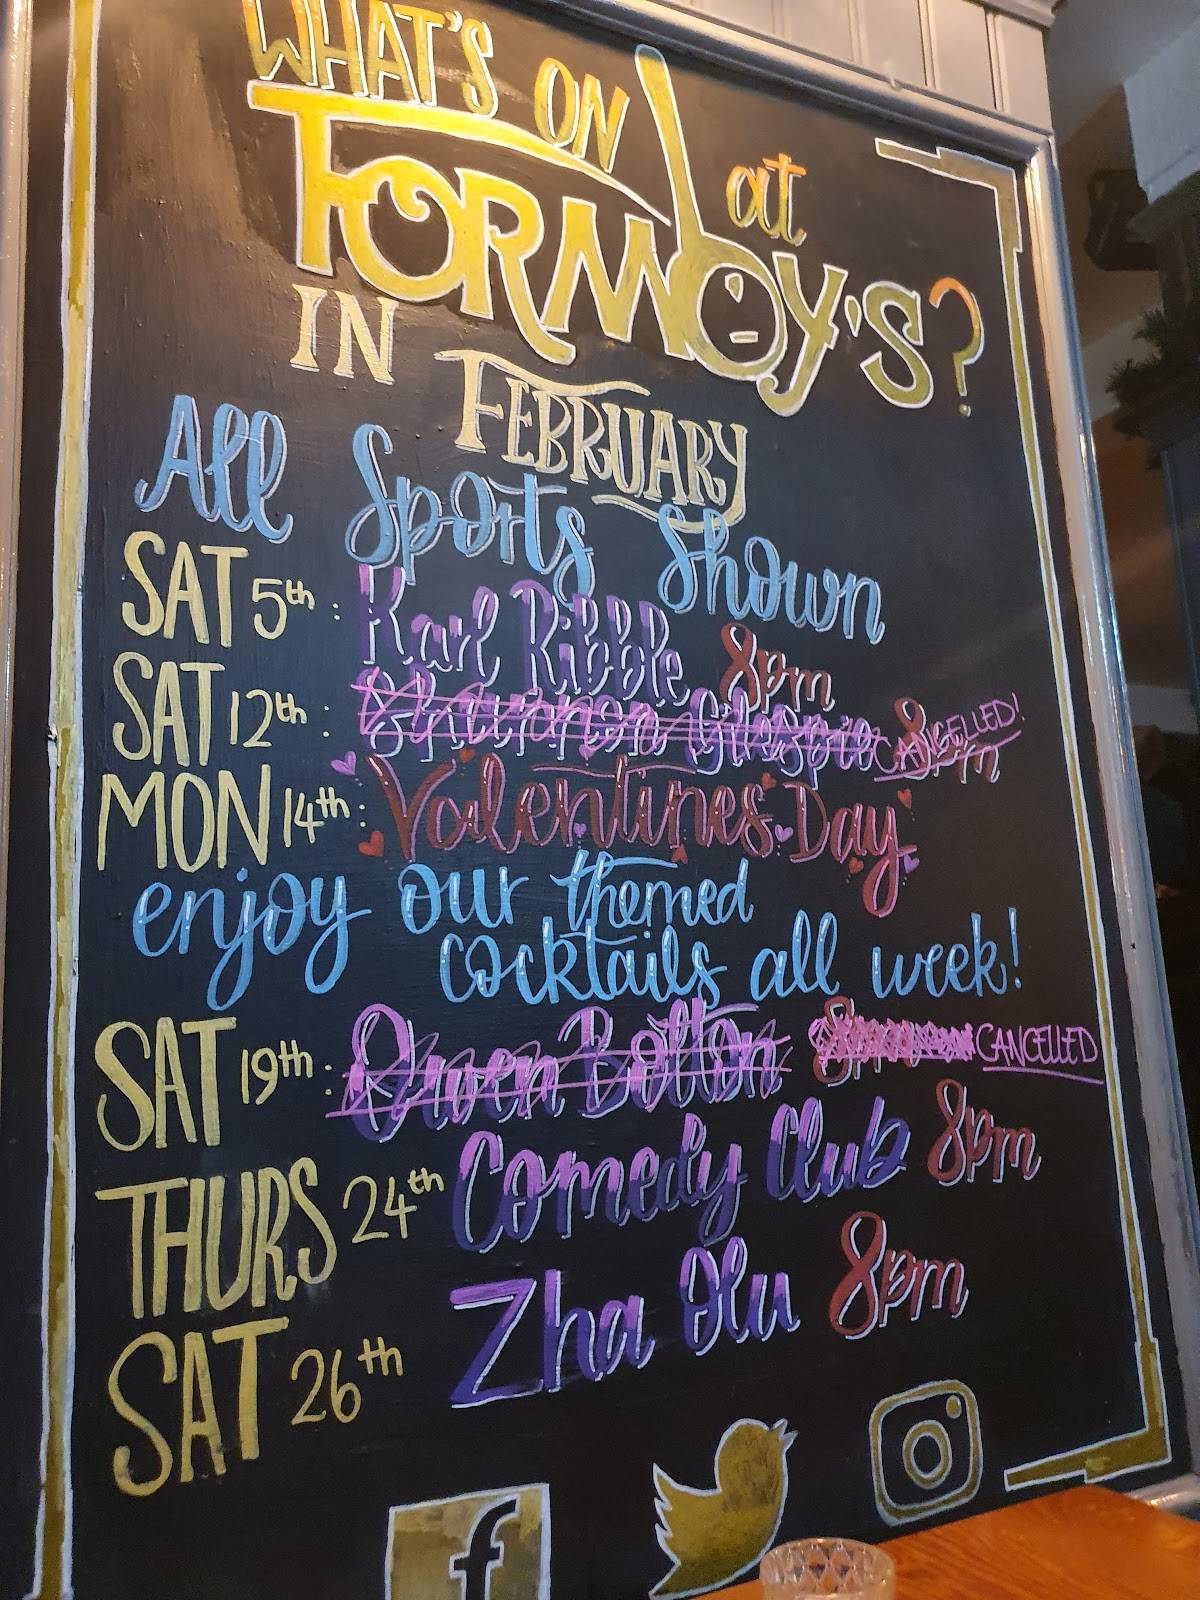 WHAT'S ON at
FORMBY'S?
IN FEBRUARY
All Sports Shown
SAT 5th: Karl Ribble 8pm
SAT 12th: Shannon Gillespie 8pm CANCELLED!
MON 14th: Valentines Day
enjoy our themed
cocktails all week!
SAT 19th: Owen Bolton CANCELLED
THURS 24th Comedy Club 8pm
SAT 26th Zha Olu 8pm
f